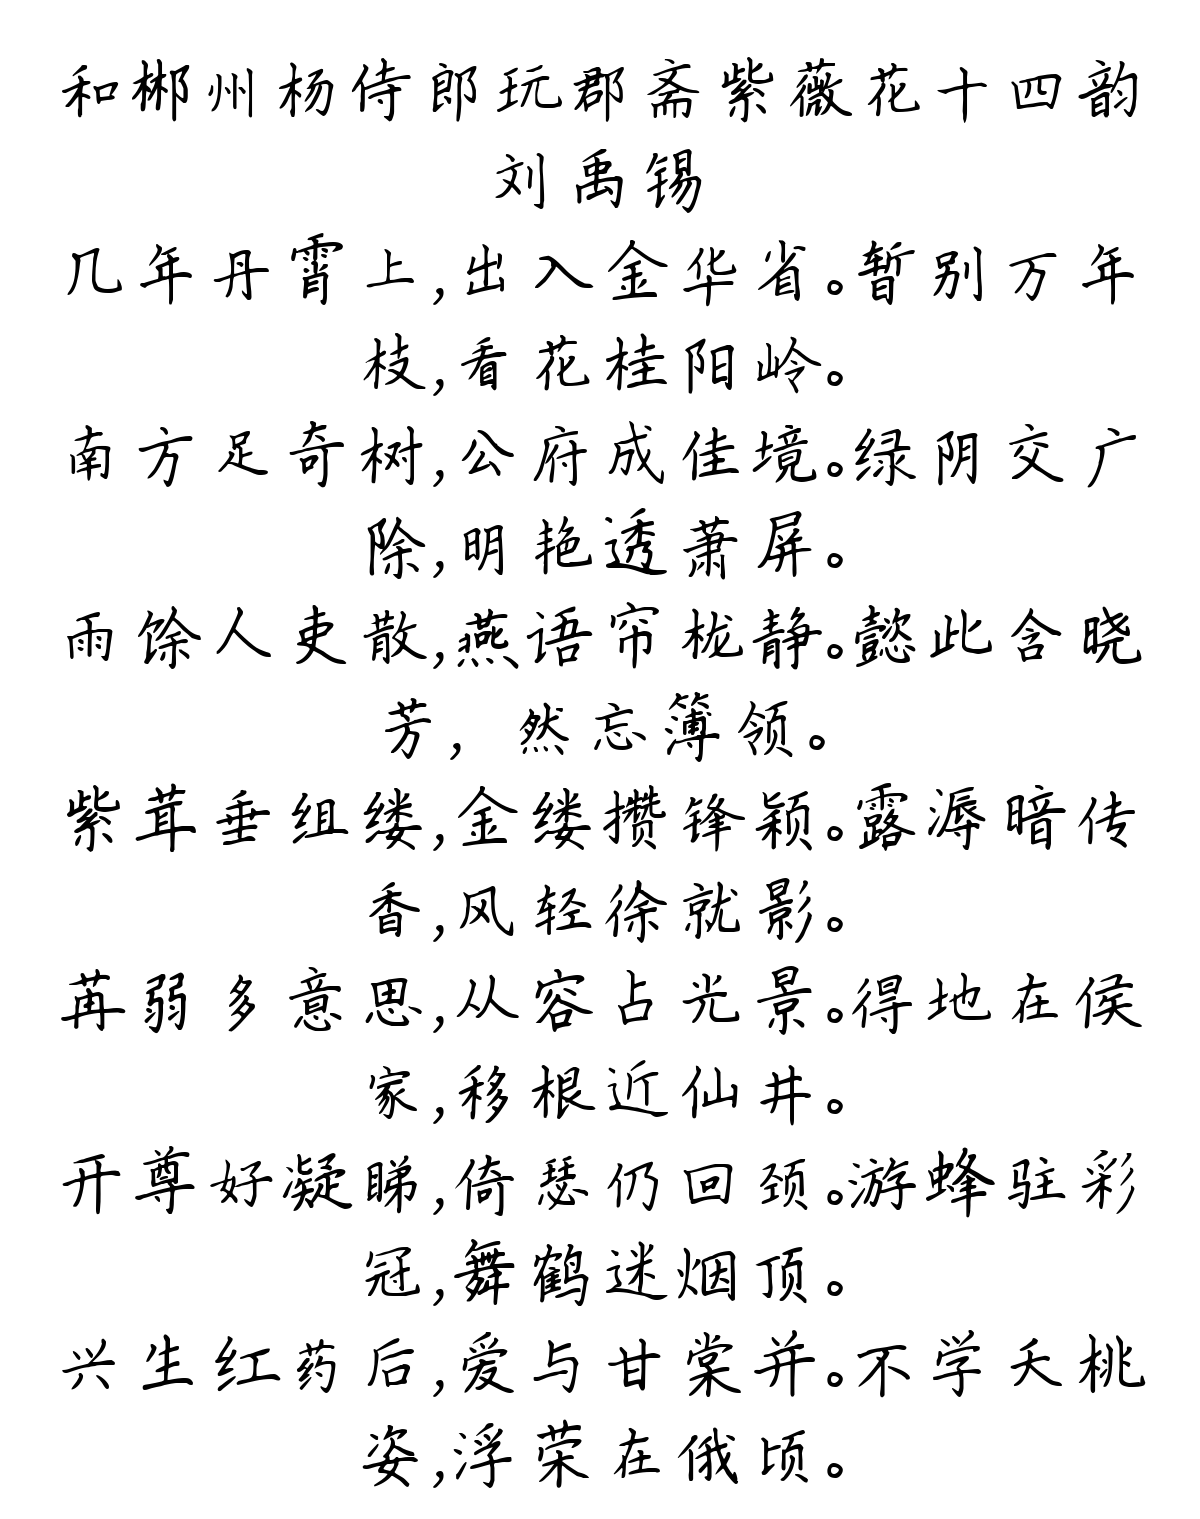 和郴州杨侍郎玩郡斋紫薇花十四韵
刘禹锡
几年丹霄上,出入金华省。暂别万年
枝,看花桂阳岭。
南方足奇树,公府成佳境。绿阴交广
除,明艳透萧屏。
雨馀人吏散,燕语帘栊静。懿此含晓
芳, 然忘簿领。
紫茸垂组缕,金缕攒锋颖。露溽暗传
香,风轻徐就影。
苒弱多意思,从容占光景。得地在侯
家,移根近仙井。
开尊好凝睇,倚瑟仍回颈。游蜂驻彩
冠,舞鹤迷烟顶。
兴生红药后,爱与甘棠并。不学夭桃
姿,浮荣在俄顷。